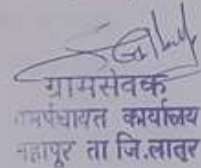 ग्रामसेवक
ग्रामपंचायत कार्यालय
महापूर ता जि.लातूर